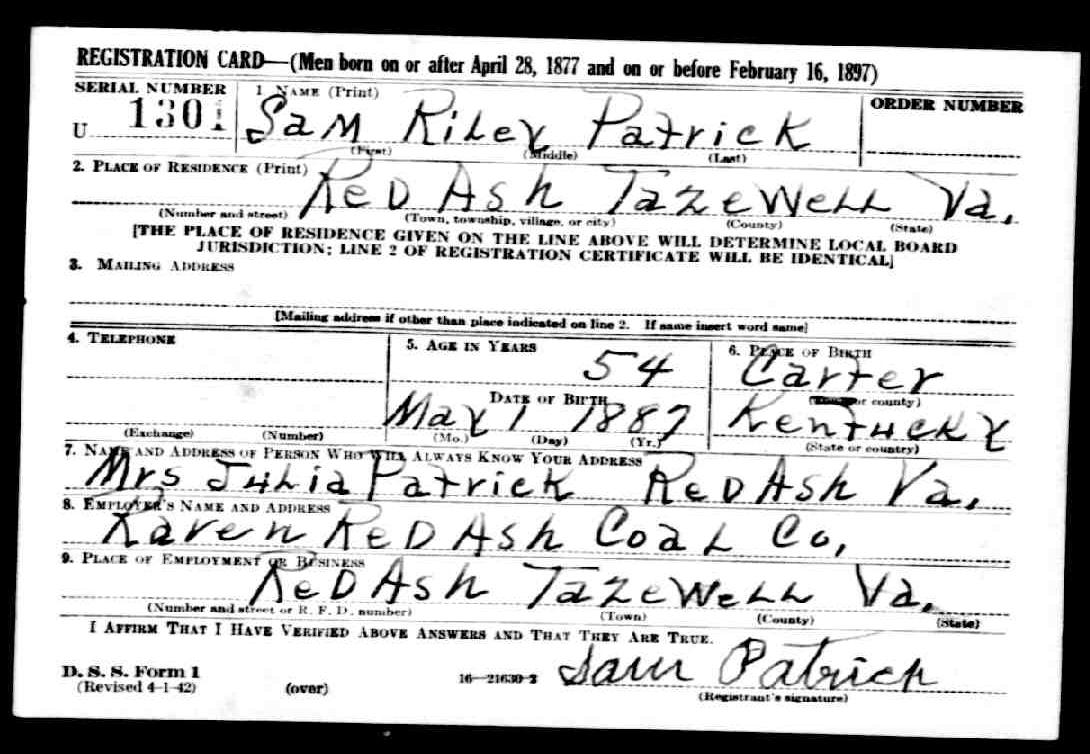 REGISTRATION CARD—(Men born on or after April 28, 1877 and on or before February 16, 1897)
SERIAL NUMBER 1. NAME (Print) ORDER NUMBER
U 1301 Sam Riley Patrick
(First) (Middle) (Last)
2. PLACE OF RESIDENCE (Print)
Red Ash Tazewell Va.
(Number and street) (Town, township, village, or city) (County) (State)
[THE PLACE OF RESIDENCE GIVEN ON THE LINE ABOVE WILL DETERMINE LOCAL BOARD
JURISDICTION; LINE 2 OF REGISTRATION CERTIFICATE WILL BE IDENTICAL]
3. MAILING ADDRESS
[Mailing address if other than place indicated on line 2. If same insert word same]
4. TELEPHONE 5. AGE IN YEARS 6. PLACE OF BIRTH
54 Carter
DATE OF BIRTH or county)
May 1 1887 Kentucky
(Exchange) (Number) (Mo.) (Day) (Yr.) (State or country)
7. NAME AND ADDRESS OF PERSON WHO WILL ALWAYS KNOW YOUR ADDRESS
Mrs Julia Patrick Red Ash Va.
8. EMPLOYER'S NAME AND ADDRESS
Raven Red Ash Coal Co,
9. PLACE OF EMPLOYMENT OR BUSINESS
Red Ash Tazewell Va.
(Number and street or R. F. D. number) (Town) (County) (State)
I AFFIRM THAT I HAVE VERIFIED ABOVE ANSWERS AND THAT THEY ARE TRUE.
D. S. S. Form 1 Sam Patrick
(Revised 4-1-42) (over) 16—21630-2 (Registrant's signature)